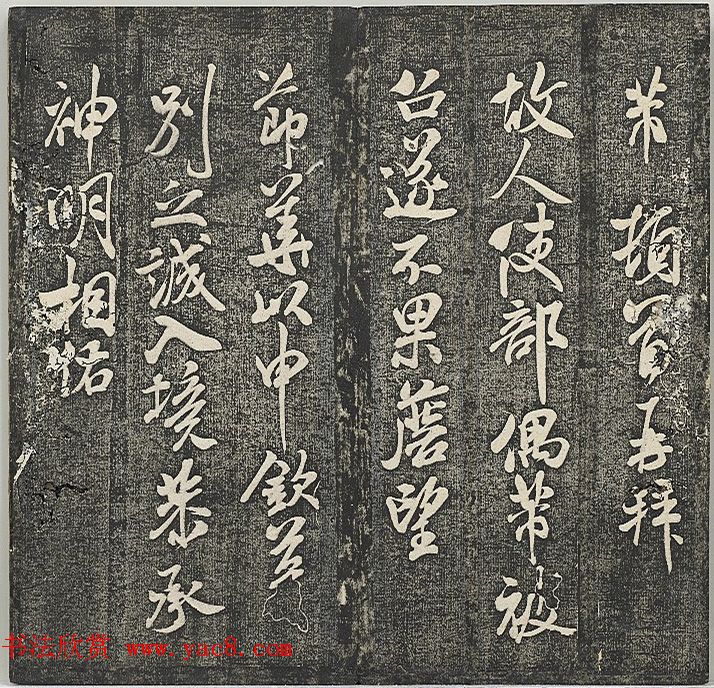 芾頓首再拜
故人使部偶芾被
召遂不果瞻望
節華以申欽
別之誠入境恭承
神明相祐
书法欣赏 www.yac8.com